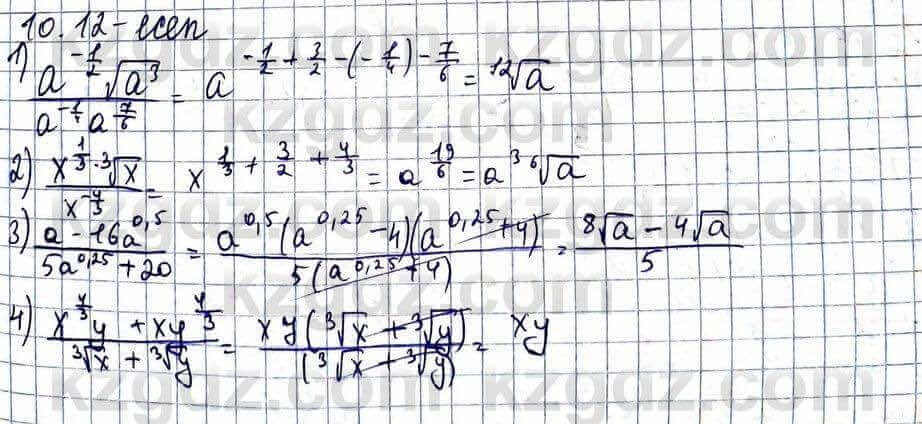 10.12-есеп
1) \frac{a^{-\frac{1}{2}} \sqrt{a^3}}{a^{-\frac{1}{4}} a^{\frac{7}{6}}} = a^{-\frac{1}{2} + \frac{3}{2} - (-\frac{1}{4}) - \frac{7}{6}} = \sqrt[12]{a}
2) \frac{x^{\frac{1}{3}} \cdot \sqrt[3]{x}}{x^{-\frac{4}{3}}} = x^{\frac{1}{3} + \frac{3}{2} + \frac{4}{3}} = a^{\frac{19}{6}} = a^3 \sqrt[6]{a}
3) \frac{a - 16a^{0,5}}{5a^{0,25} + 20} = \frac{a^{0,5}(a^{0,25} - 4)(a^{0,25} + 4)}{5(a^{0,25} + 4)} = \frac{8\sqrt{a} - 4\sqrt{a}}{5}
4) \frac{x^{\frac{4}{3}} y + xy^{\frac{4}{3}}}{\sqrt[3]{x} + \sqrt[3]{y}} = \frac{xy(\sqrt[3]{x} + \sqrt[3]{y})}{(\sqrt[3]{x} + \sqrt[3]{y})} = xy
kzgdz.com